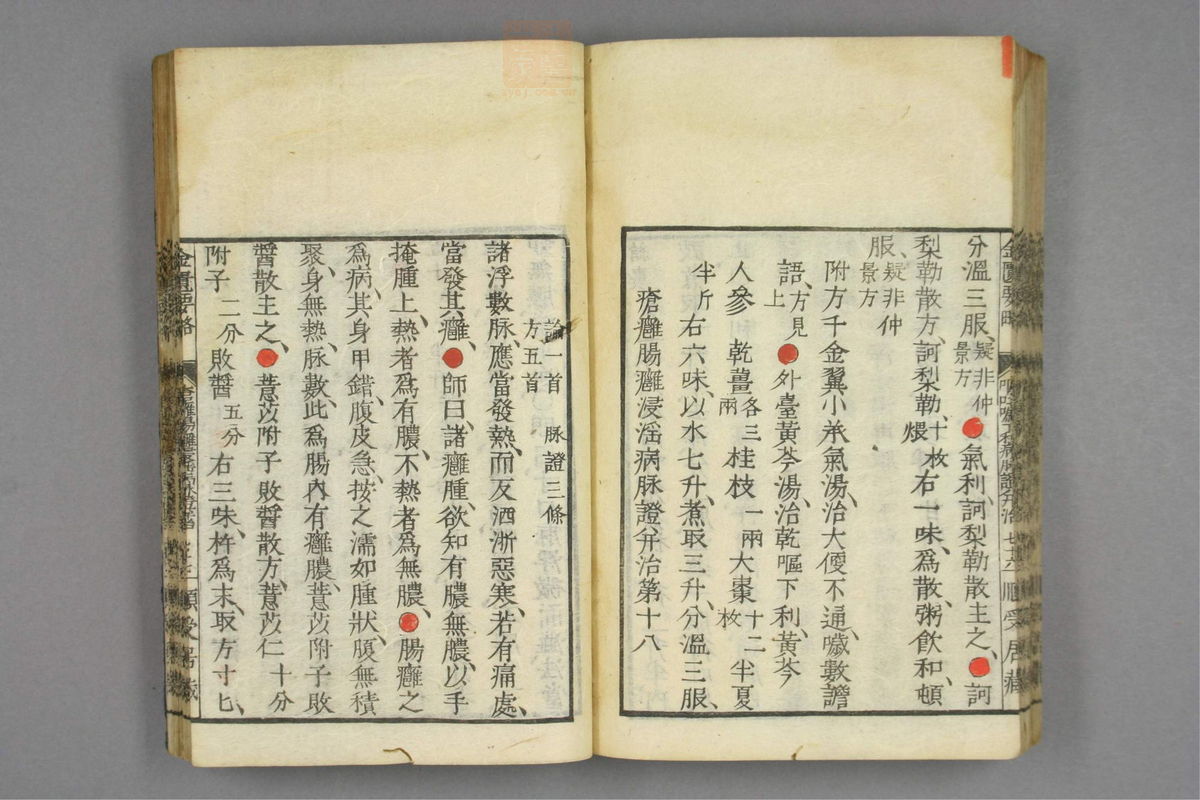 分溫三服、疑非仲景方●氣利、訶梨勒散主之、●訶
梨勒散方、訶梨勒十枚煨右一味、爲散、粥飲和、頓
服、疑非仲景方
附方千金翼小承氣湯、治大便不通、噦數譫
語、方見上●外臺黃芩湯、治乾嘔下利、黃芩
人參乾薑各三兩桂枝一兩大棗十二枚半夏
半斤右六味、以水七升、煮取三升、分溫三服、
瘡癰腸癰浸淫病脉證幷治第十八
論一首脉證三條
方五首
諸浮數脉、應當發熱、而反洒淅惡寒、若有痛處、
當發其癰、●師曰、諸癰腫、欲知有膿無膿、以手
掩腫上、熱者爲有膿、不熱者爲無膿、●腸癰之
爲病、其身甲錯、腹皮急、按之濡如腫狀、腹無積
聚、身無熱、脉數、此爲腸內有癰膿、薏苡附子敗
醬散主之、●薏苡附子敗醬散方、薏苡仁十分
附子二分敗醬五分右三味、杵爲末、取方寸匕、
金匱要略
順受居藏